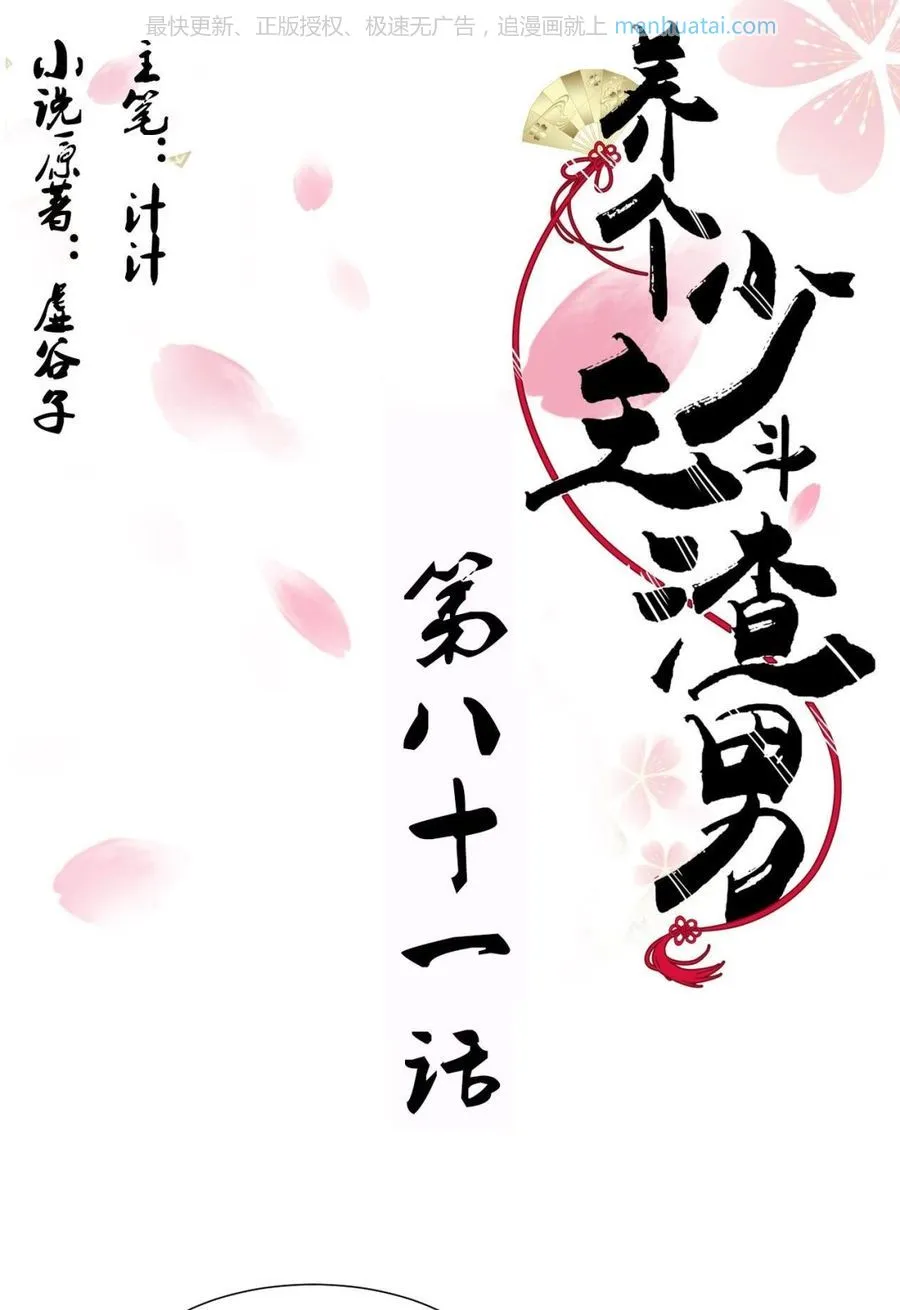 最快更新、正版授权、极速无广告，追漫画就上 manhuatai.com
养个少主斗渣男
第八十一话
主笔：汁汁
小说原著：虚谷子